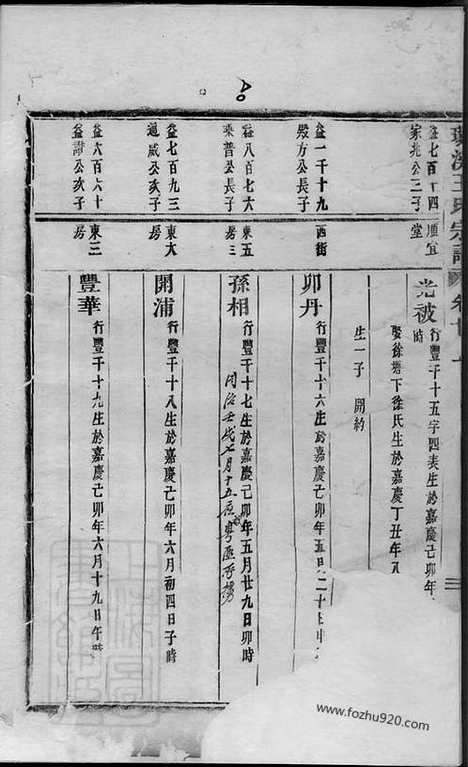 王氏宗譜
益七百十四 順宜堂
家兆公二子
光被 行豐千十五字四表生於嘉慶己卯年
時
娶徐塘下徐氏生於嘉慶丁丑年八
生一子 開約
益一千十九 西街
殿方公長子
卯丹 行豐千十六生於嘉慶己卯年五
益八百七六 東五房三
秉普公長子
孫相 行豐千十七生於嘉慶己卯年五月廿九日卯時
同治壬戌七月十五
益七百九三 東大房
通咸公次子
開浦 行豐千十八生於嘉慶己卯年六月初四日子時
益六百六十 東三房
益謙公次子
豐華 行豐千十九生於嘉慶己卯年六月十九日午時
www.fozhu920.com